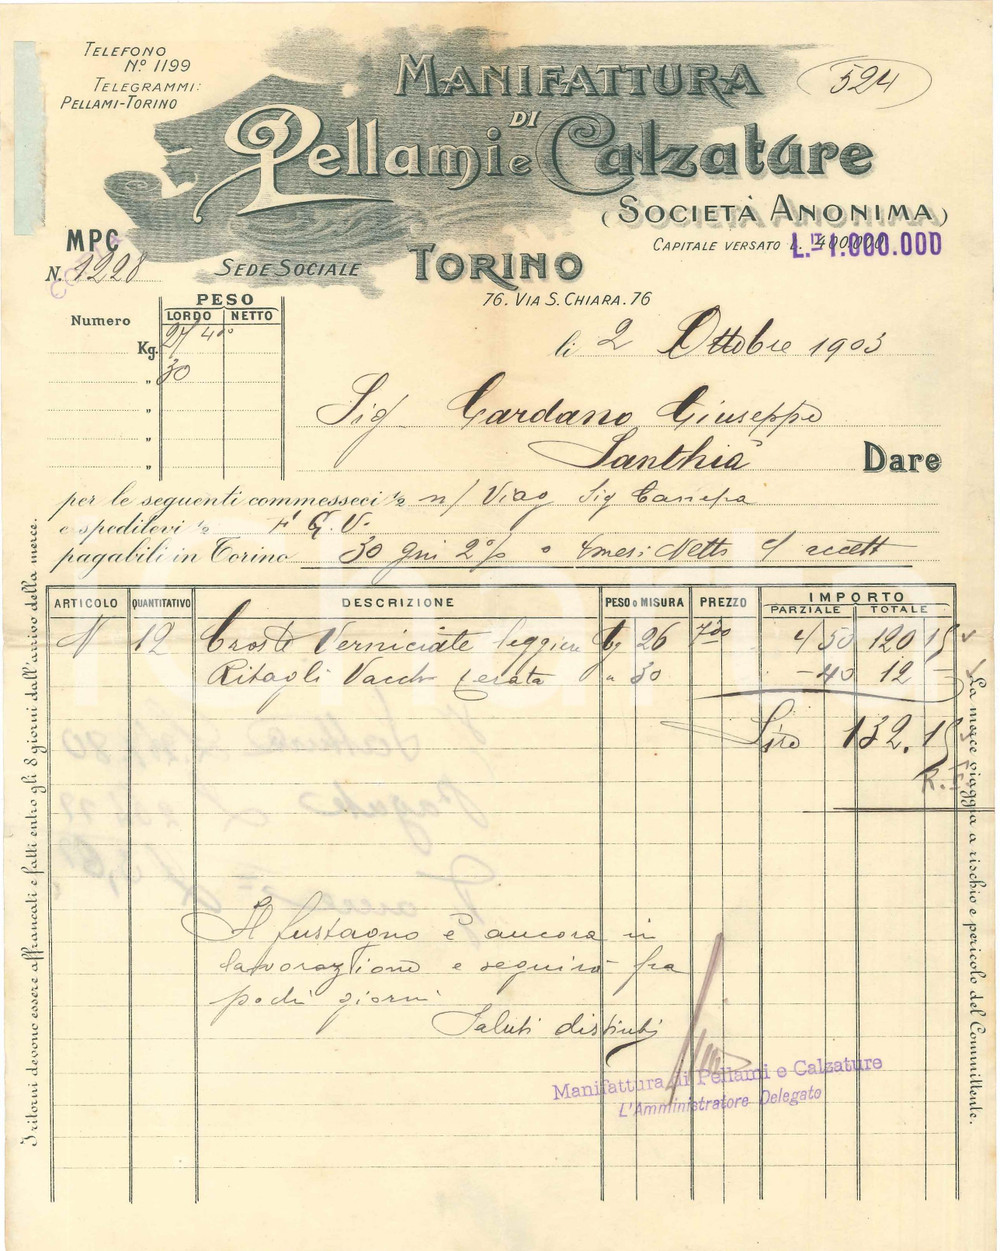 TELEFONO
Nº 1199
TELEGRAMMI:
PELLAMI-TORINO
524
MANIFATTURA
DI
Pellami e Calzature
(SOCIETÀ ANONIMA)
CAPITALE VERSATO L. 400.000
L. 1.000.000
MPC
N. 1228
SEDE SOCIALE TORINO
76. VIA S. CHIARA. 76
PESO
Numero LORDO NETTO
Kg. 27 400
" 30
"
"
"
li 2 Ottobre 1903
Sig Cardano Giuseppe
Santhià Dare
per le seguenti commesseci ½ n/ Viag Sig Canepa
e speditevi ½ G. V.
pagabili in Torino 30 gni 2% o 4 mesi Netto accett
ARTICOLO QUANTITATIVO DESCRIZIONE PESO o MISURA PREZZO IMPORTO
PARZIALE TOTALE
N 12 Croste Verniciate leggiere Kg 26 4/50 120 15
Ritagli Vacch cerata " 30 -40 12 -
Lire 132.15
Il fustagno è ancora in
lavorazione e seguirà fra
pochi giorni
Saluti distinti
Manifattura di Pellami e Calzature
L'Amministratore Delegato
I ritorni devono essere affrancati e fatti entro gli 8 giorni dall'arrivo della merce.
La merce viaggia a rischio e pericolo del Committente.